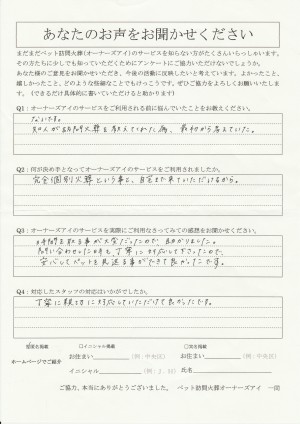 あなたのお声をお聞かせください
まだまだペット訪問火葬(オーナーズアイ)のサービスを知らない方がたくさんいらっしゃいます。
その方たちに少しでも知っていただくためにアンケートにご協力いただけないでしょうか。
あなた様のご意見をお聞かせいただき、今後の活動に反映したいと考えています。よかったこと、
嬉しかったこと、どのような些細なことでもけっこうです。ぜひご協力をよろしくお願いいたしま
す。(できるだけ具体的に書いていただけると助かります)
Q1:オーナーズアイのサービスをご利用される前に悩んでいたことをお教えください。
ないです。
知人が訪問火葬を教えてくれた為、最初から考えていた。
Q2:何が決め手となってオーナーズアイのサービスをご利用されましたか。
完全個別火葬という事と、自宅まで来ていただけるから。
Q3:オーナーズアイのサービスを実際にご利用なさってみての感想をお聞かせください。
時間を取る事が大変だったので、助かりました。
問い合わせした時も、丁寧に対応して下さったので、
安心してペットを見送る事ができて良かったです。
Q4:対応したスタッフの対応はいかがでしたか。
丁寧に親切に対応していただけて良かったです。
匿名掲載 □イニシャル掲載 □実名掲載
ホームページでご紹介 お住まい (例:中央区) お住まい (例:中央区)
イニシャル (例:J.H) 氏名
ご協力、本当にありがとうございました。 ペット訪問火葬オーナーズアイ 一同